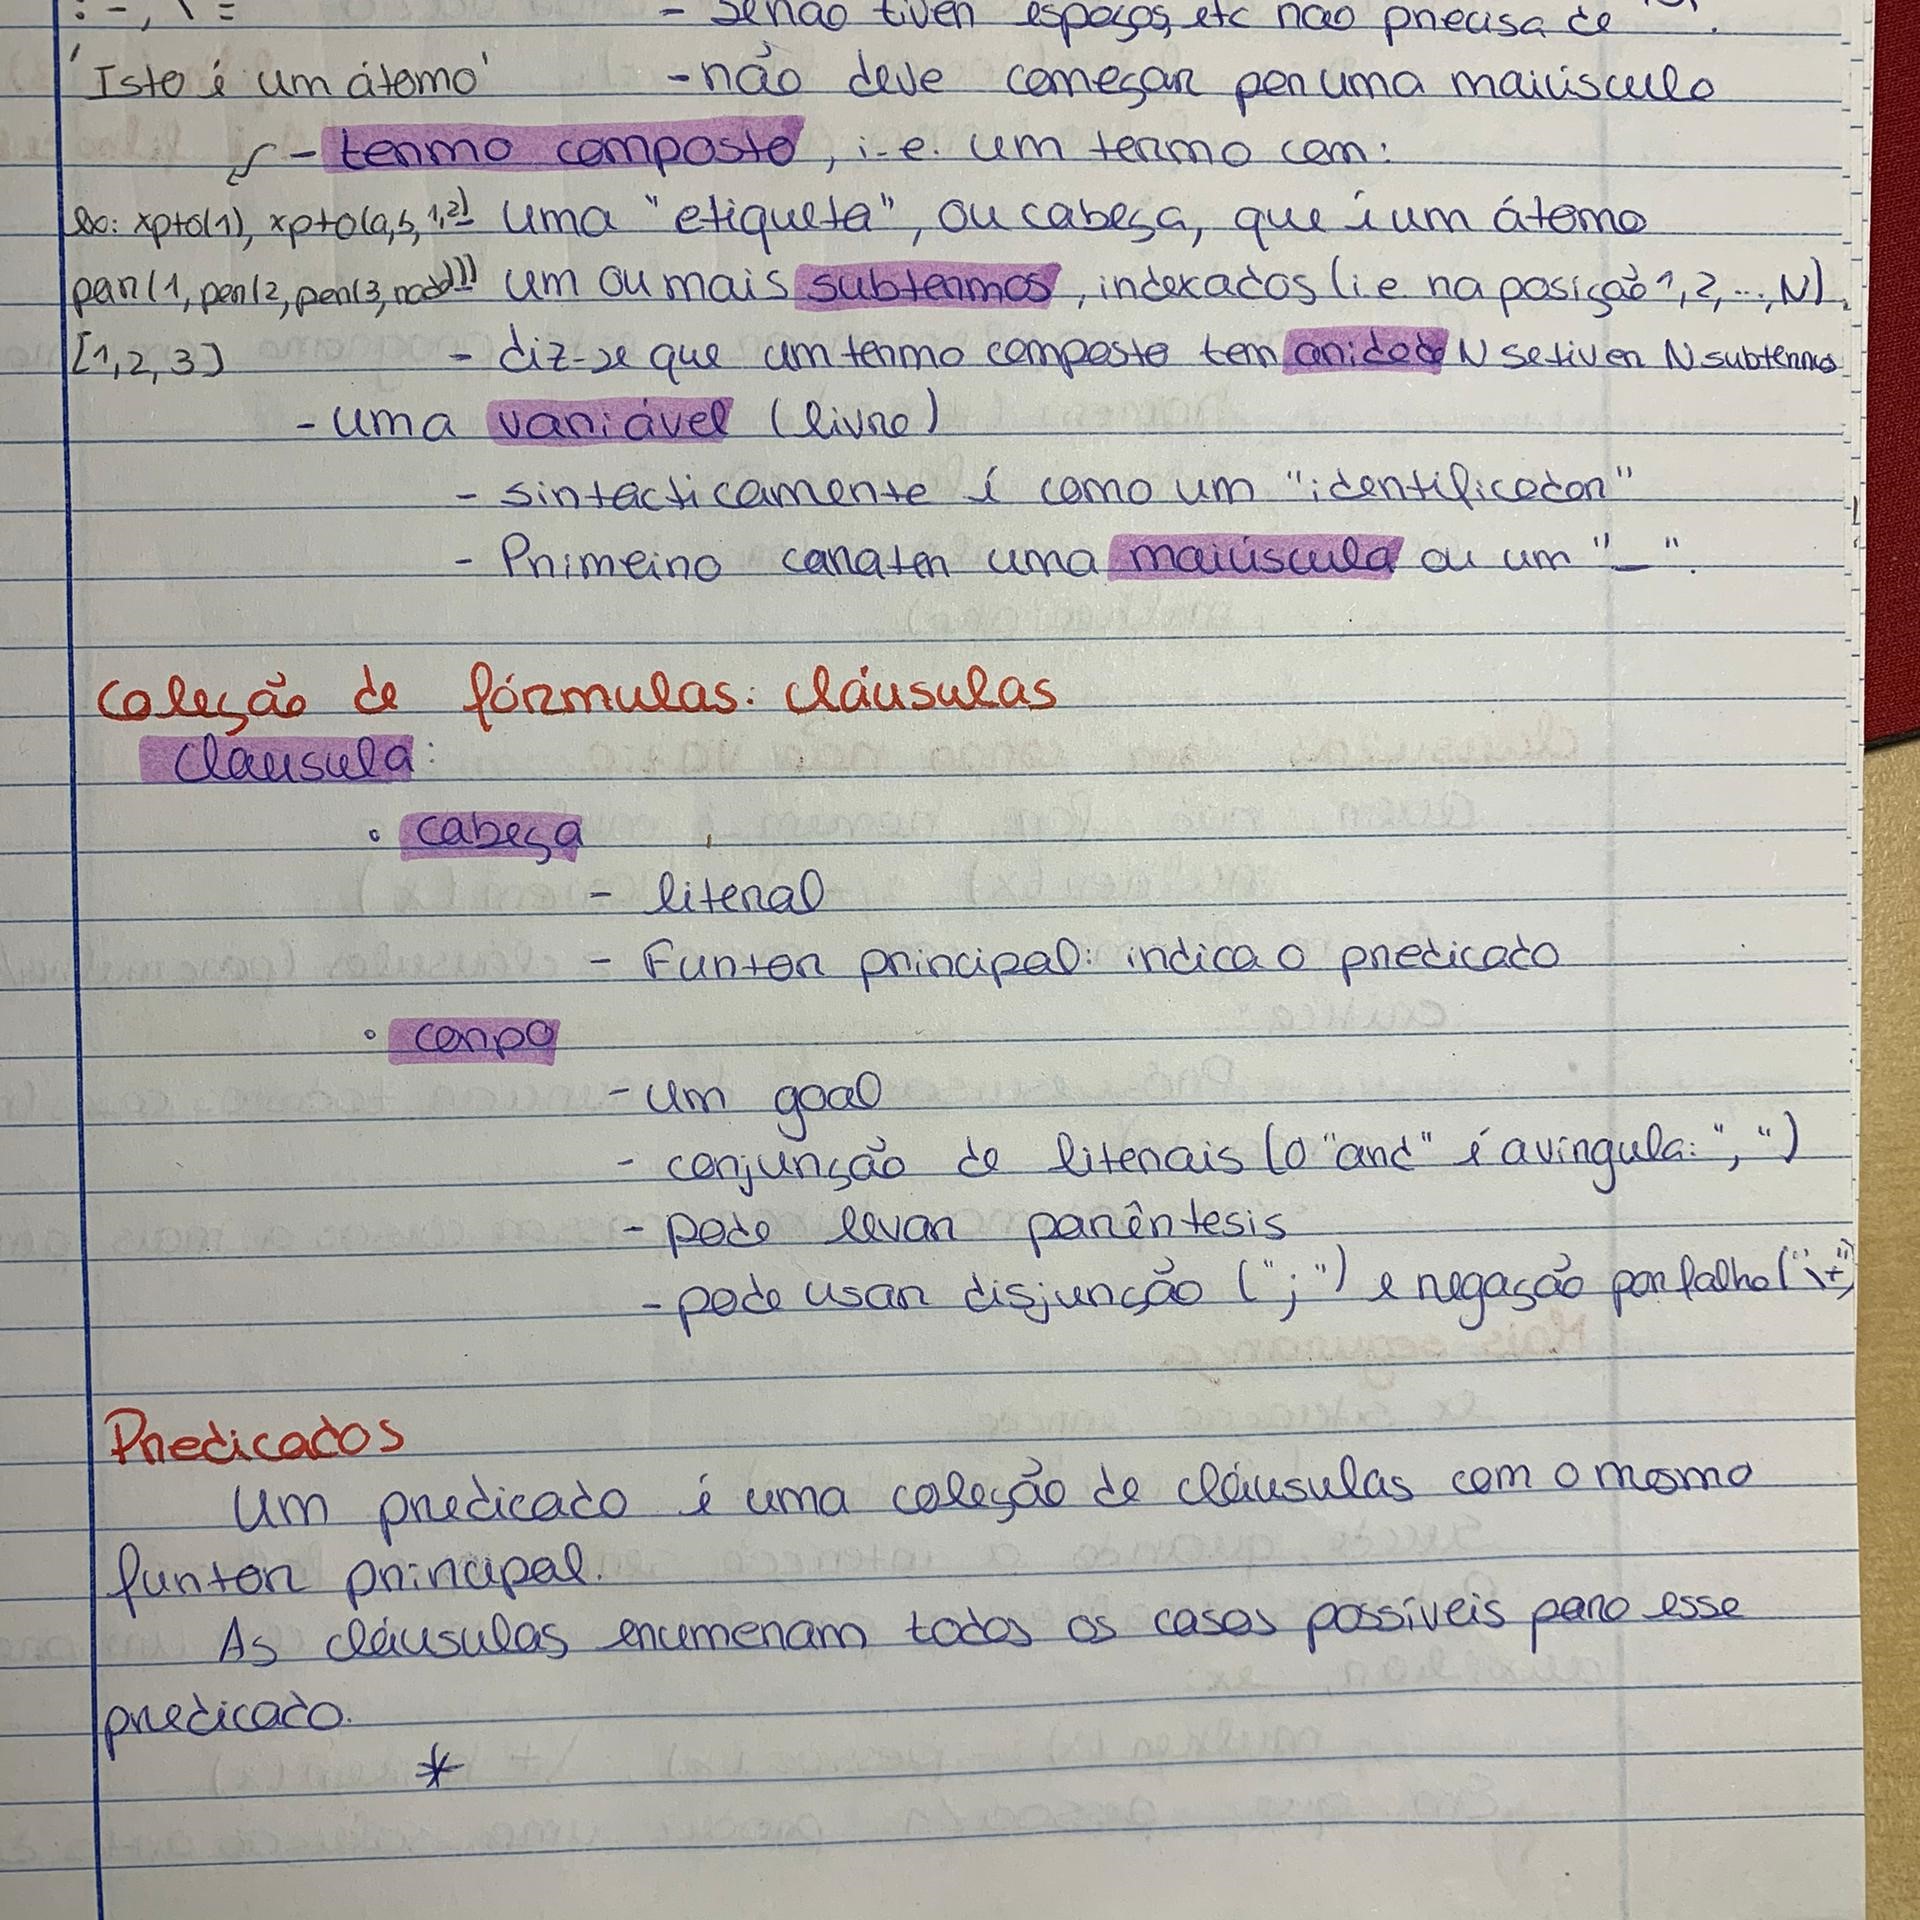 :-, \=
- Senão tiver espaços, etc não precisa de ' '.
'Isto é um átomo' - não deve começar por uma maiúsculo
- termo composto, i-e. um termo com:
ex: xpto(1), xpto(a,b,1,2) uma "etiqueta", ou cabeça, que é um átomo
par(1, par(2, par(3, nada))) um ou mais subtermos, indexados (i.e na posição 1, 2, ..., N).
[1,2,3] - diz-se que um termo composto tem aridade N se tiver N subtermos
- uma variável (livre)
- sintacticamente é como um "identificador"
- Primeiro carater uma maiúscula ou um "_".
Coleção de fórmulas: cláusulas
Cláusula:
• cabeça
- literal
- Funtor principal: indica o predicado
• corpo
- um goal
- conjunção de literais (o "and" é a vírgula: ",")
- pode levar parêntesis
- pode usar disjunção (";") e negação por falha ("\+")
Predicados
Um predicado é uma coleção de cláusulas com o mesmo
funtor principal.
As cláusulas enumeram todos os casos possíveis para esse
predicado.
*